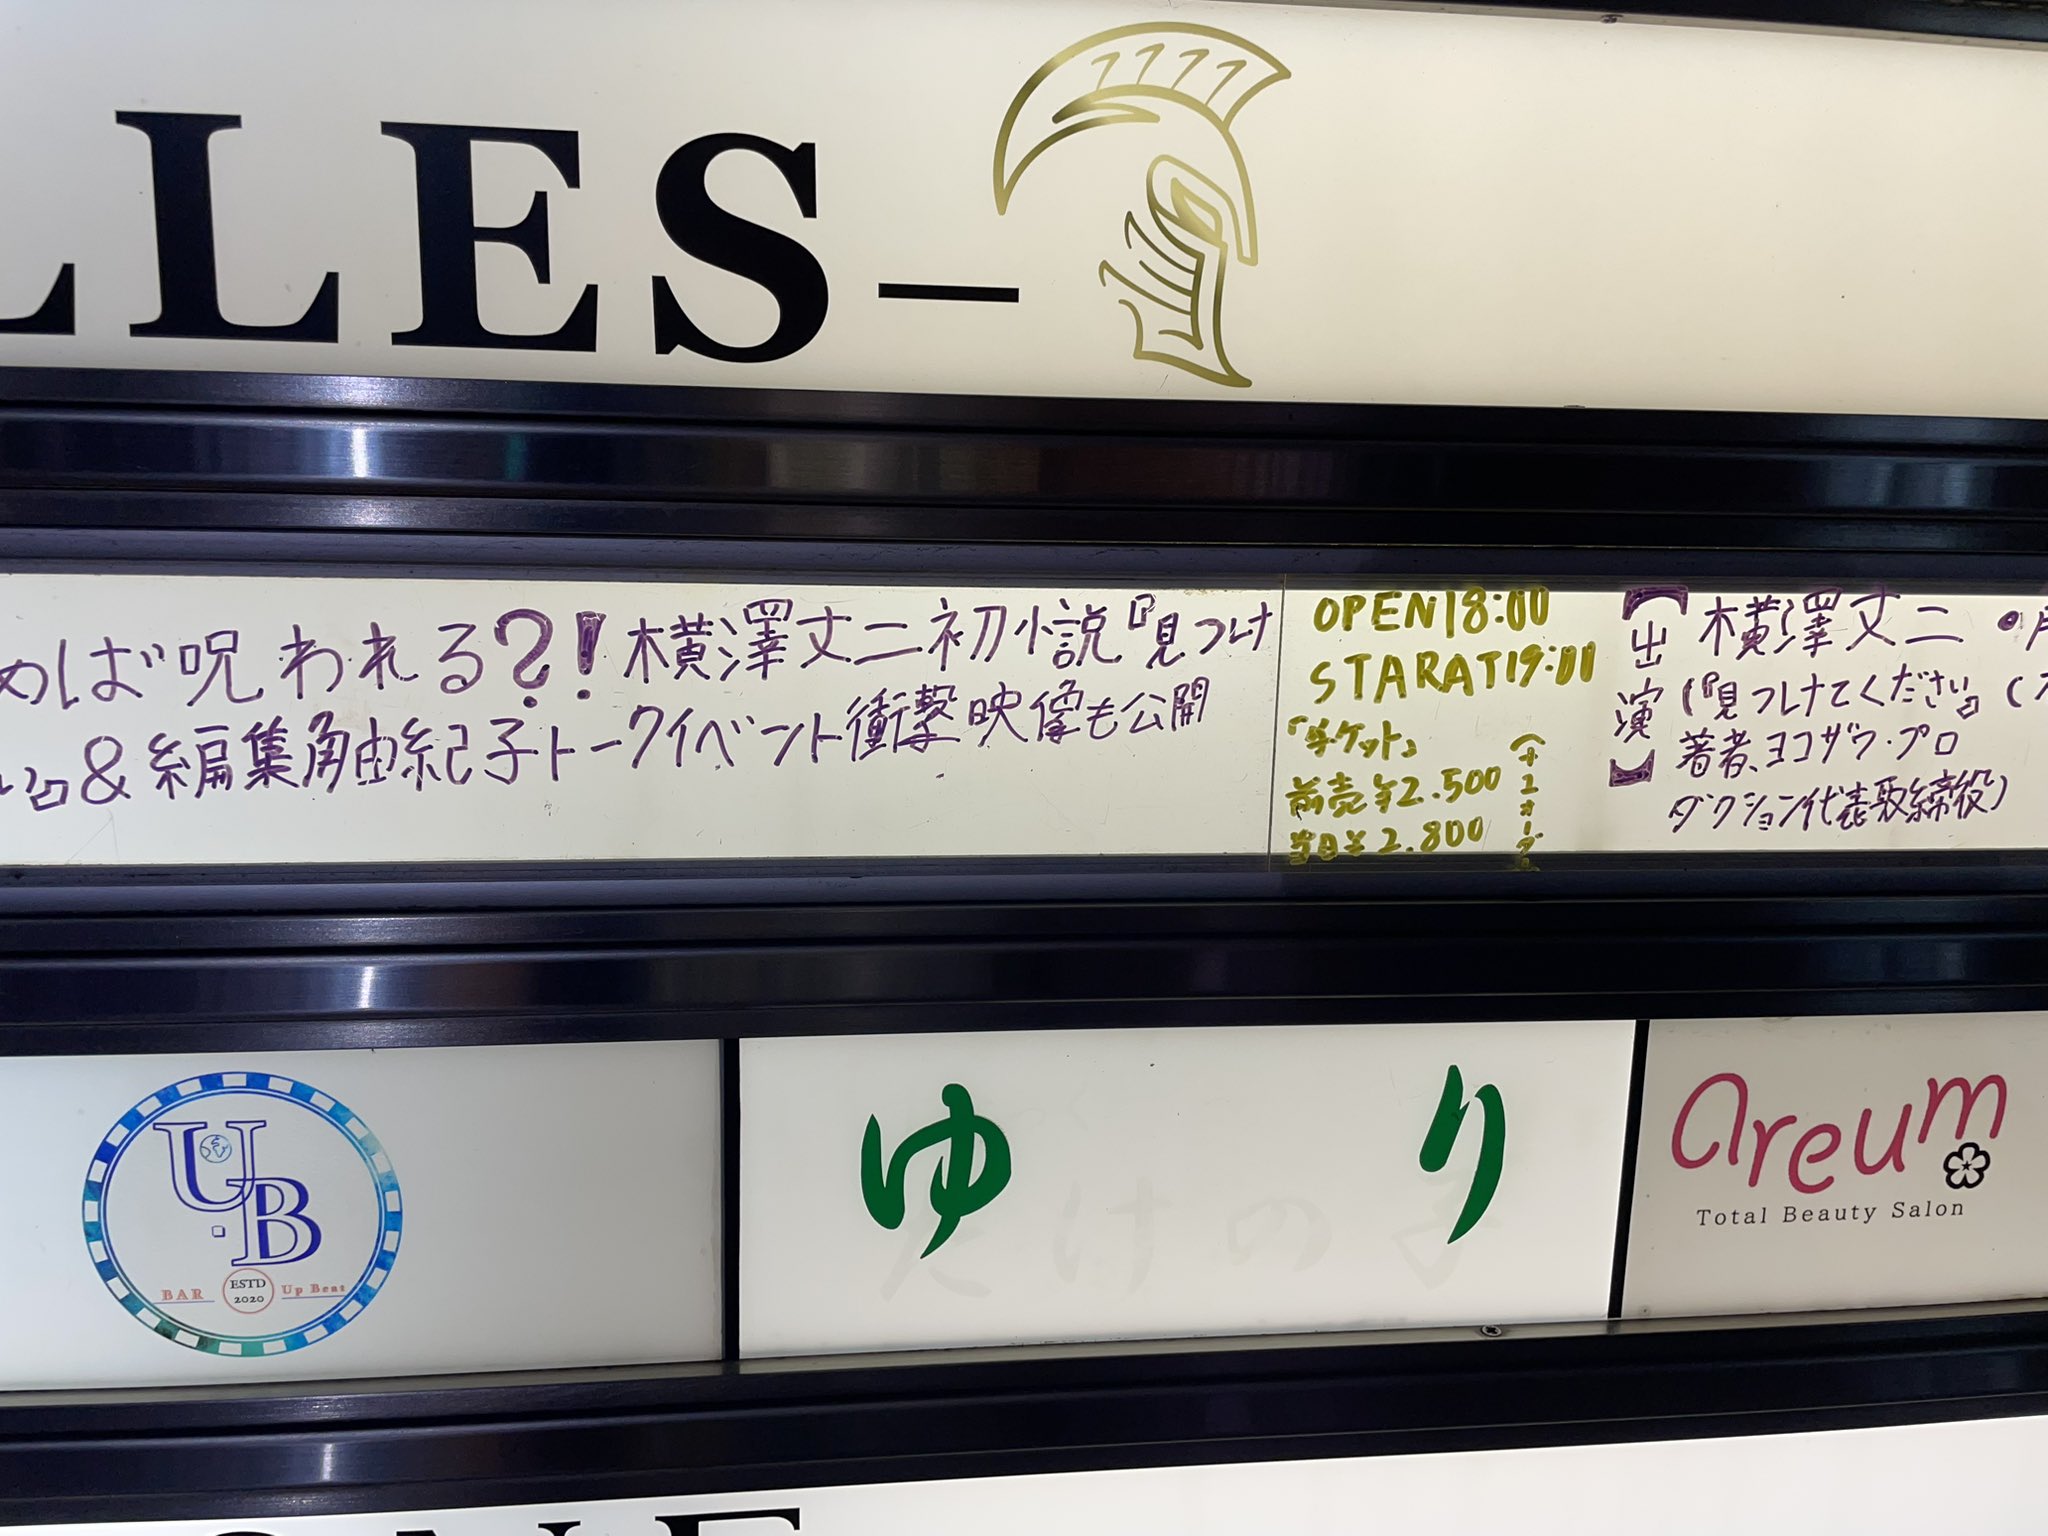 LLES–
めば呪われる?!横澤丈二初小説『見つけ
い』&編集角由紀子トークイベント衝撃映像も公開
OPEN18:00
STARAT19:00
『チケット』
前売¥2.500
当日¥2.800
(+1オーダー
【出演】
横澤丈二・
(『見つけてください』
著者、ヨコザワ・プロ
ダクション代表取締役)
U.B
BAR ESTD 2020 Up Beat
ゆり
たけの子
areum
Total Beauty Salon